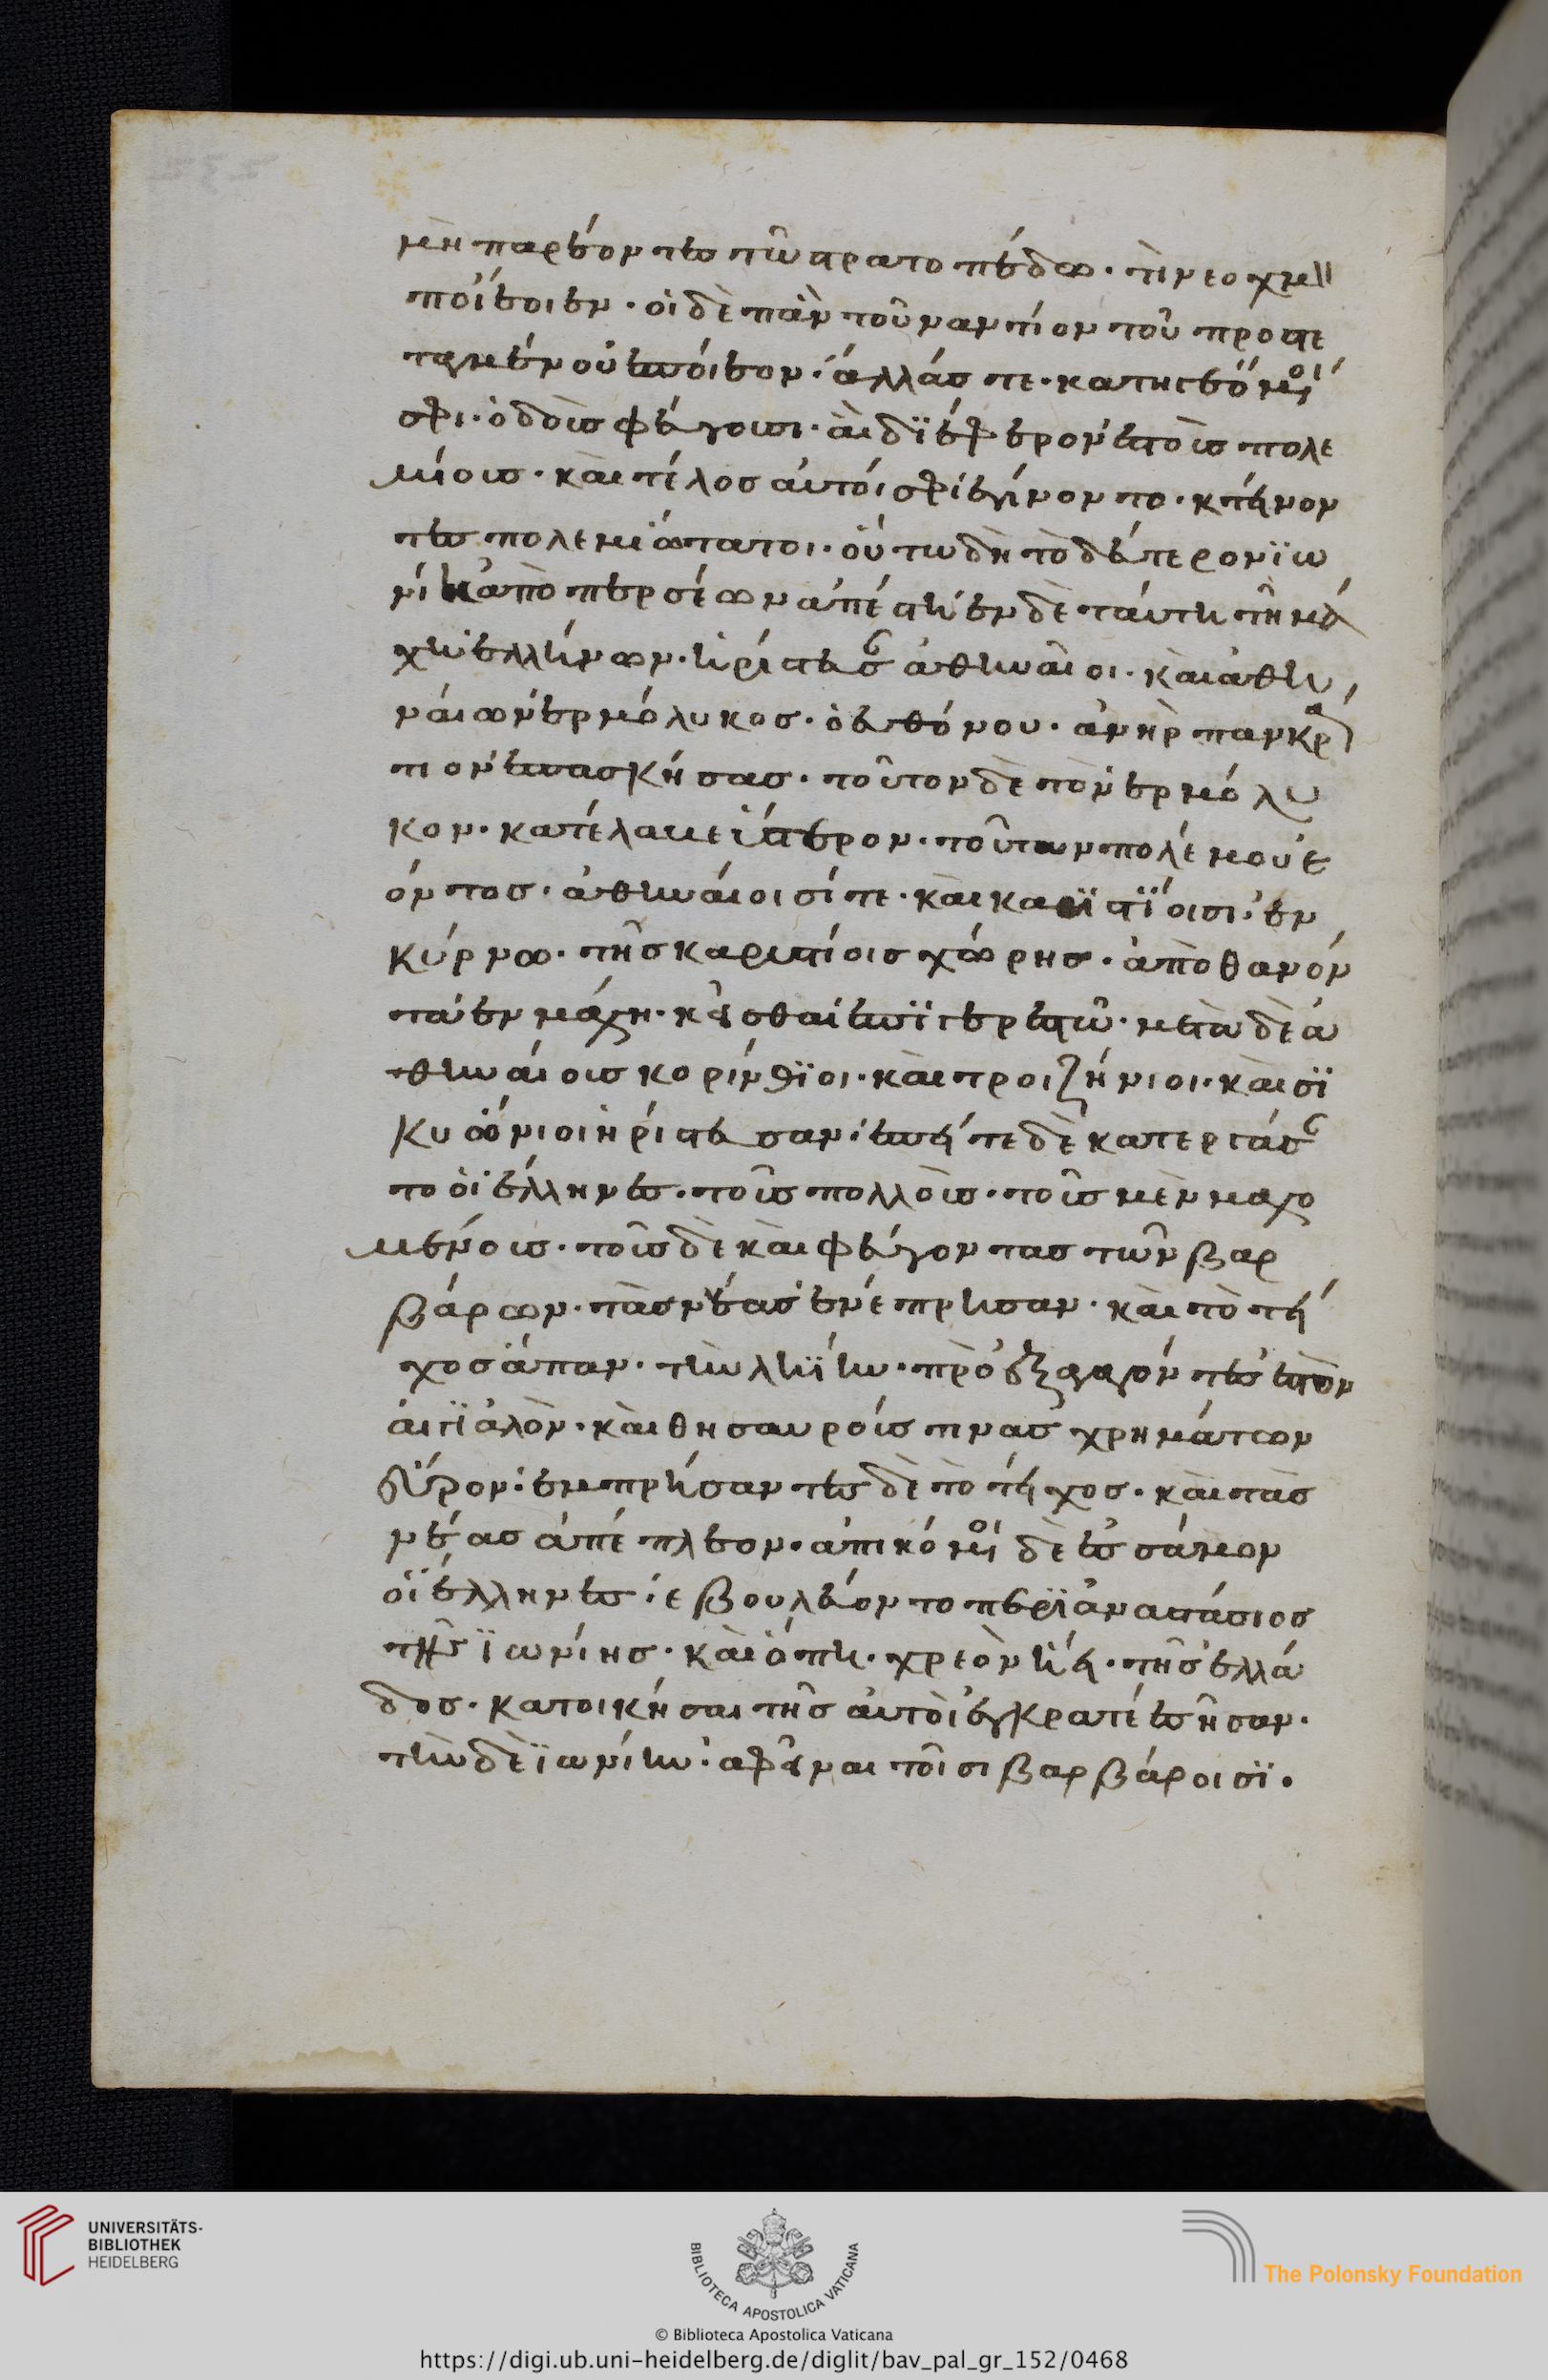 μὴ παρεόντες τῶ στρατοπέδω· τὶ νεοχμὸν
ποίεοιεν· οἱ δὲ πὰν τοὐναντίον τοῦ προστε
ταγμένου ἐποίεον· ἄλλάς τε· κατηγεόμενοί
σφι· ὁδοὺς φεύγουσι· ἃι δϊέφερον ἐς τοὺς πολε
μίους· καὶ τέλος ἀυτόι σφι ἐγίνοντο· κτείνον
τες πολεμϊώτατοι· οὕτω δὴ τὸ δεύτερον ϊω
νίη ἀπὸ περσέων ἀπέστη· ἐν δὲ ταύτη τῆ μά
χη ἑλλήνων· ἠρίστευσαν ἀθηναῖοι· καὶ ἀθη
ναίων ἑρμόλυκος· ὁ εὐθύνου· ἀνὴρ παγκρά
τιον ἐπασκήσας· τοῦτον δὲ τὸν ἑρμόλυ
κον· κατέλαβε ὕστερον· τούτων πολέμου ἐ
όντος· ἀθηναίοισί τε· καὶ καρϋστΐοισι· ἐν
κύρνω· τῆς καρυστίοις χώρης· ἀποθανόν
τα ἐν μάχη· κεῖσθαι ἐπϊ γεραιστῶ· μετὰ δὲ ἀ
θηναίους κορίνθϊοι· καὶ τροιζήνιοι· καὶ σϊ
κυώνιοι ἠρίστευσαν· ἐπεί τε δὲ κατεργάσαν
το οἱ ἕλληνες· τοὺς πολλοὺς· τοὺς μὲν μαχο
μένους· τοὺς δὲ καὶ φεύγοντας τῶν βαρ
βάρων· τὰς νέας ἐνέπρησαν· καὶ τὸ τεῖ
χος ἅπαν· τὴν ληΐην· προεξαγαγόντες ἐς τὸν
ἀιγϊαλὸν· καὶ θησαυρούς τινας χρημάτων
εὗρον· ἐμπρήσαντες δὲ τὸ τεῖχος· καὶ τὰς
νέας ἀπέπλεον· ἀπικόμενοι δὲ ἐς σάμον
οἱ ἕλληνες· ἐβουλεύοντο περϊ ἀναστάσιος
τῆς ϊωνίης· καὶ ὅπη· χρεὸν εἴη· τῆς ἑλλά
δος· κατοικήσαι τῆς ἀυτοὶ ἐγκρατέες ἦσαν·
τὴν δὲ ϊωνίην· ἀφεῖναι τοῖσι βαρβάροισϊ·
UNIVERSITÄTS-
BIBLIOTHEK
HEIDELBERG
BIBLIOTECA APOSTOLICA VATICANA
The Polonsky Foundation
© Biblioteca Apostolica Vaticana
https://digi.ub.uni-heidelberg.de/diglit/bav_pal_gr_152/0468